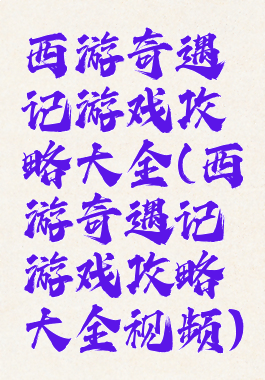 西游奇遇
记游戏攻
略大全(西
游奇遇记
游戏攻略
大全视频)